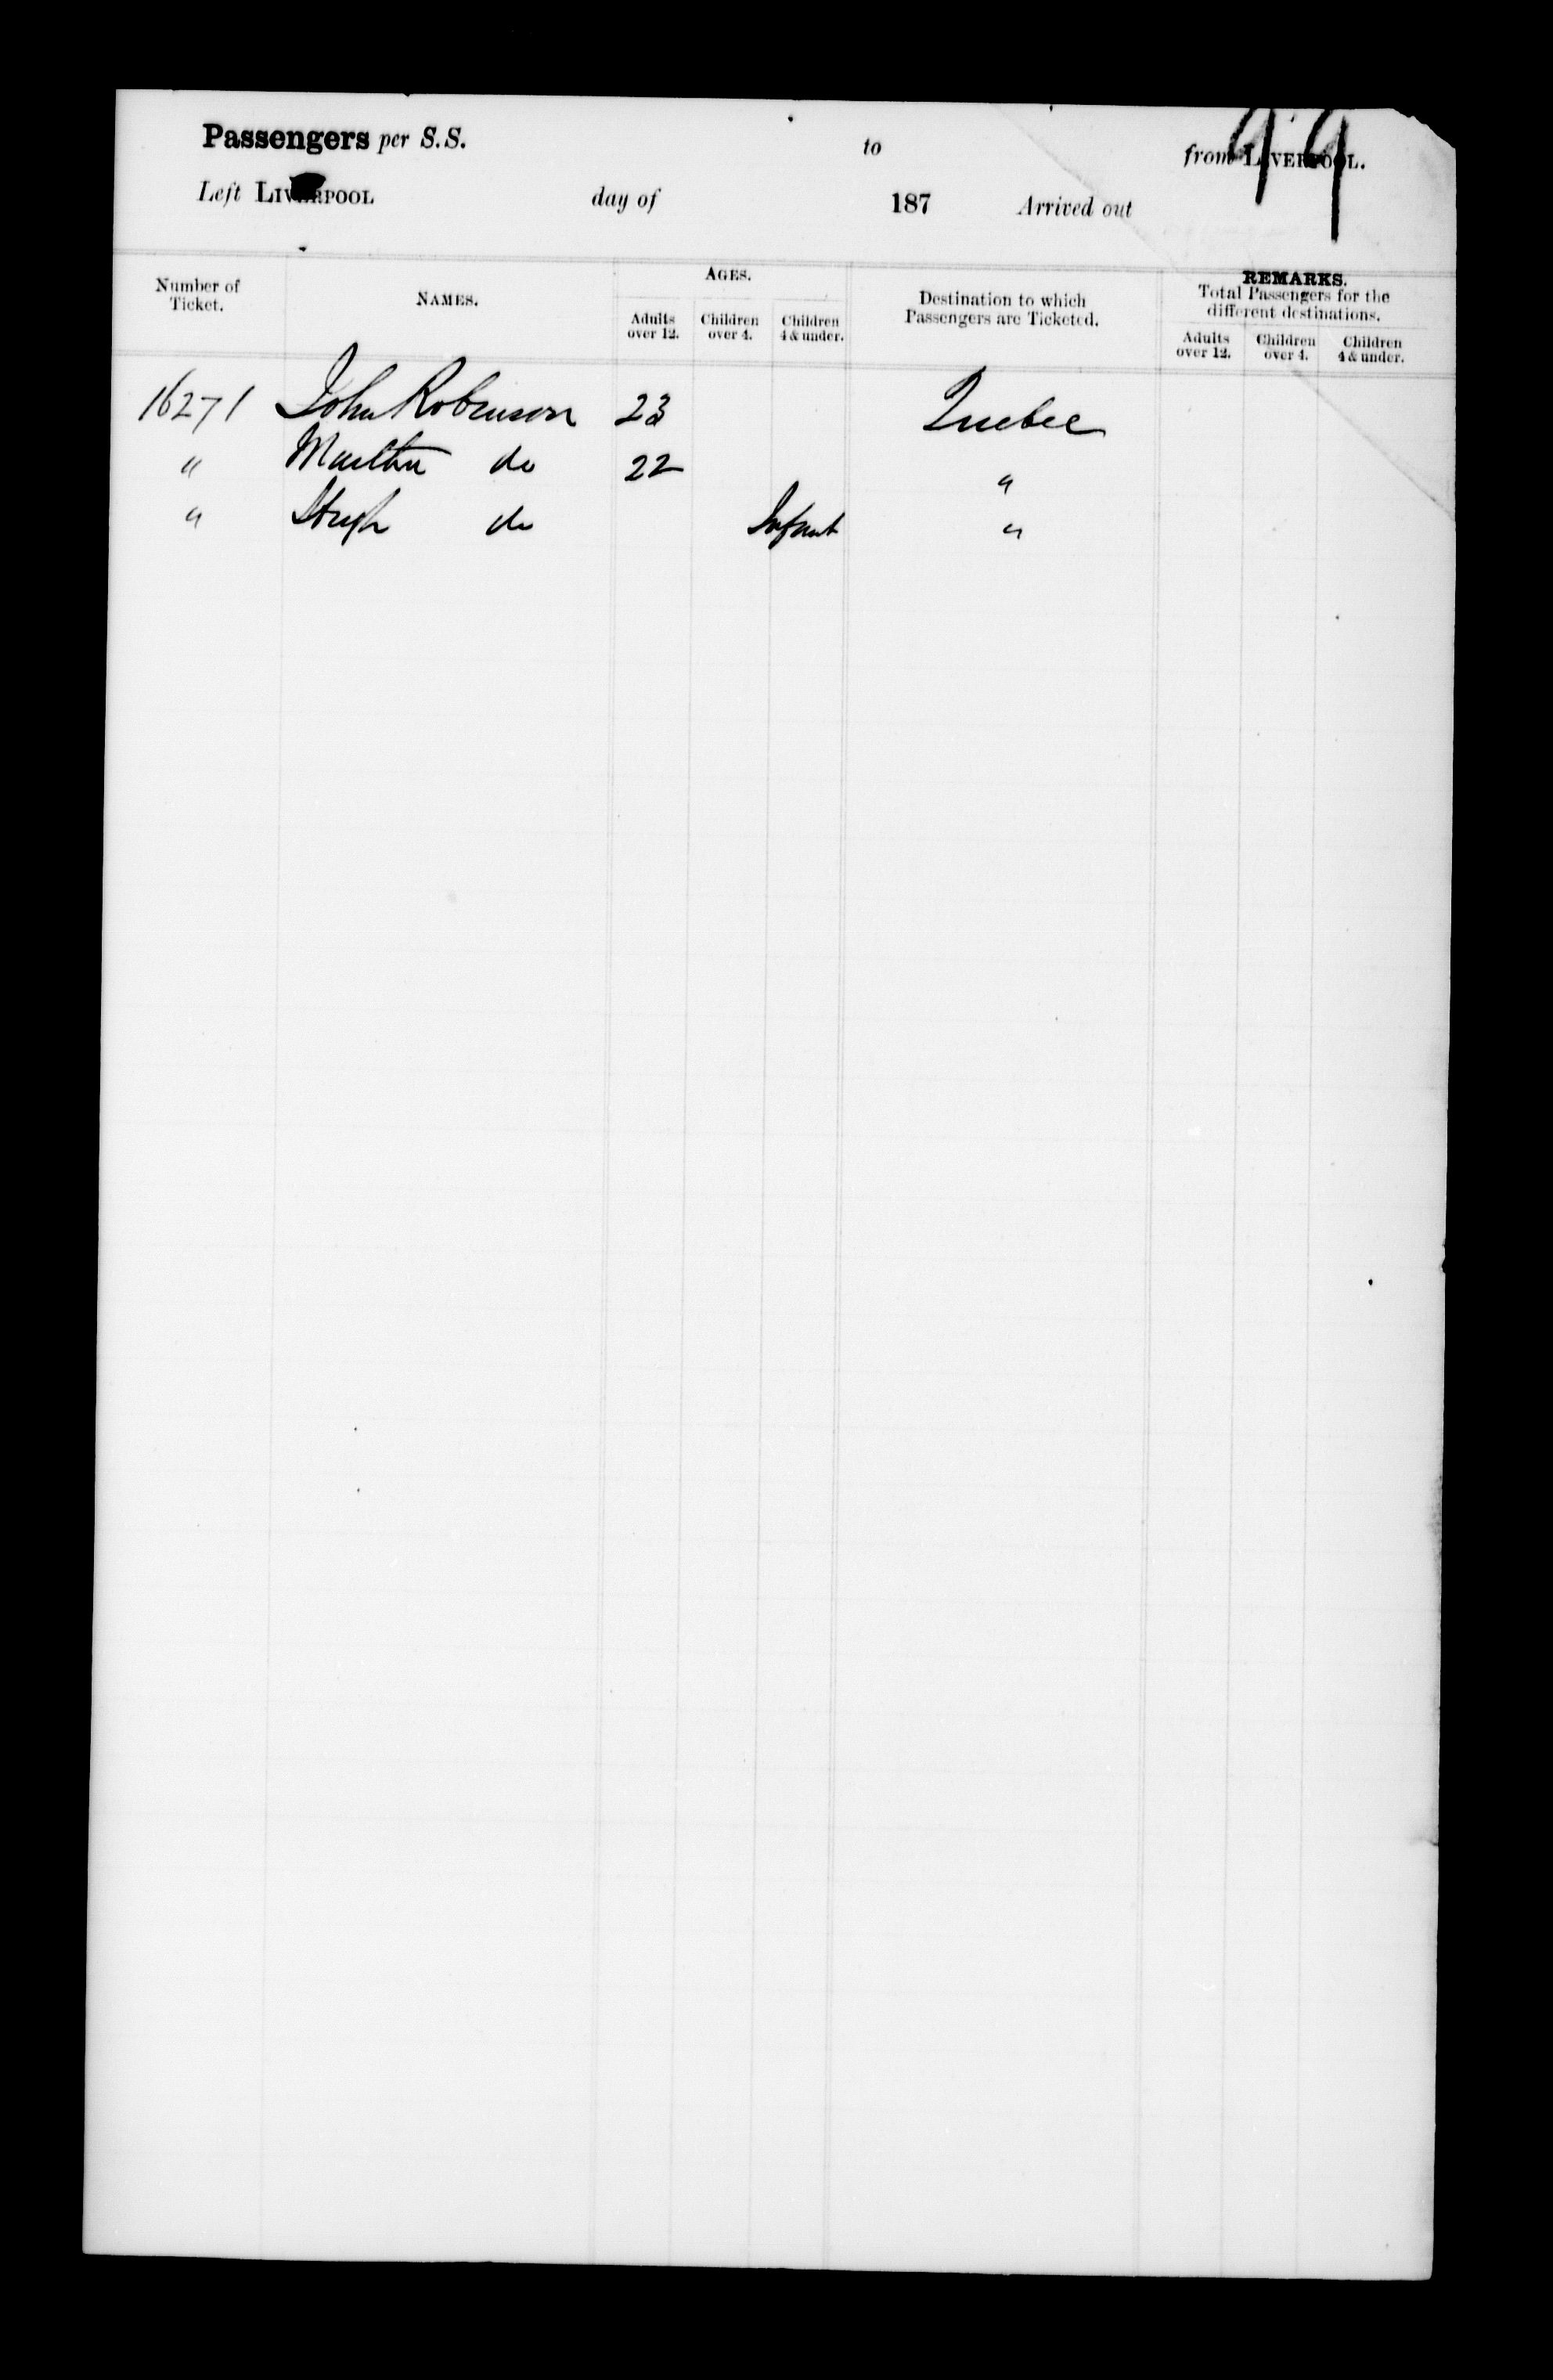 99
Passengers per S.S. to from LIVERPOOL.
Left LIVERPOOL day of 187 Arrived out
Number of Ticket. NAMES. AGES. Destination to which Passengers are Ticketed. REMARKS.
Total Passengers for the different destinations.
Adults over 12. Children over 4. Children 4 & under. Adults over 12. Children over 4. Children 4 & under.
16271 John Robinson 23 Quebec
" Martha do 22 "
" Hugh do Infant "